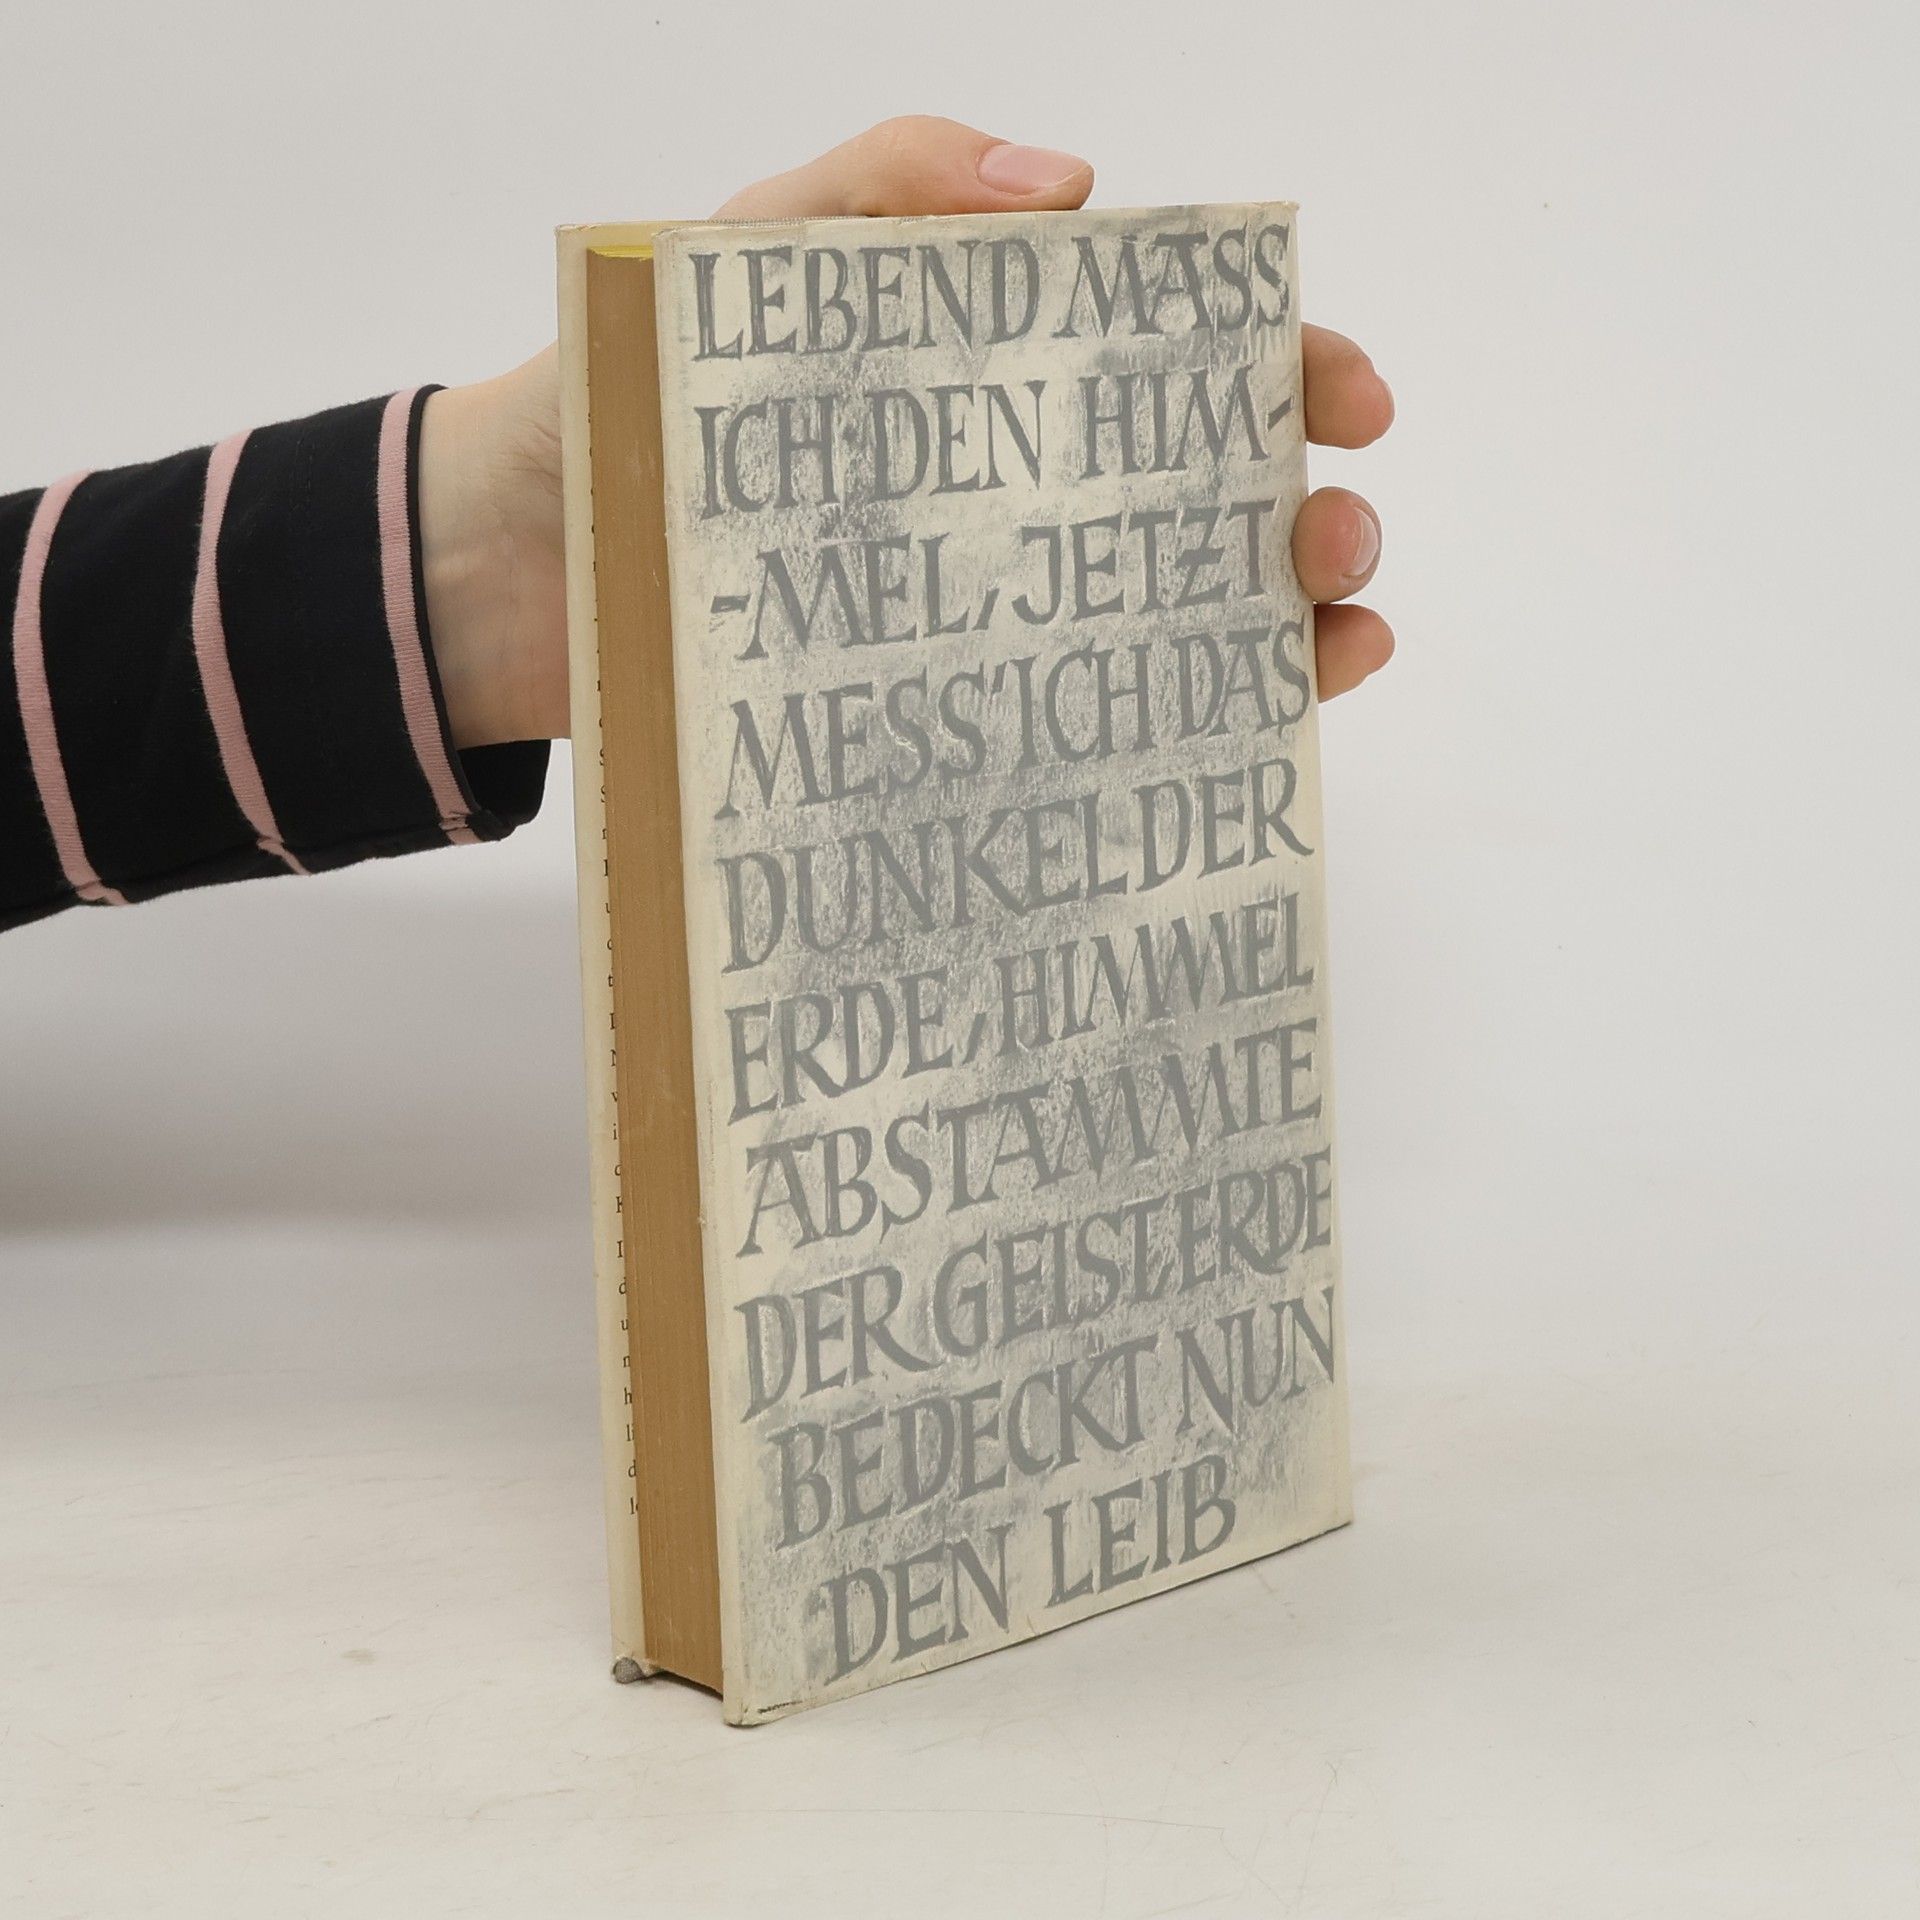 LEBEND MASS
ICH DEN HIM-
-MEL, JETZT
MESS'ICH DAS
DUNKEL DER
ERDE, HIMMEL
ABSTAMMTE
DER GEIST, ERDE
BEDECKT NUN
DEN LEIB